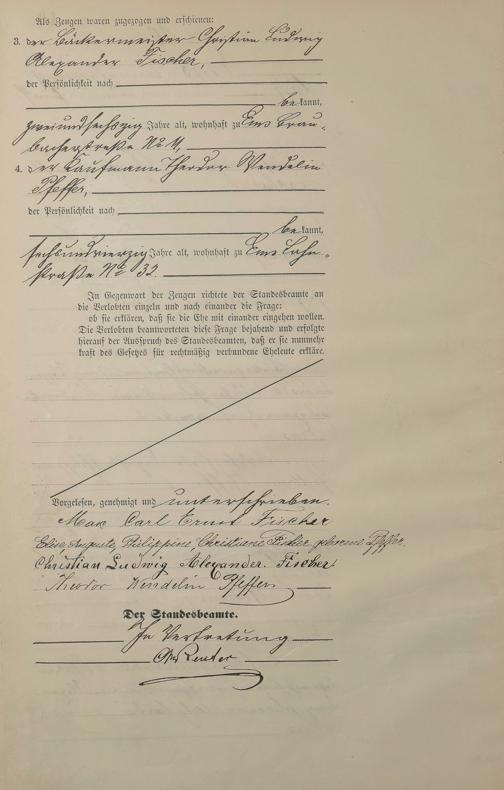 Als Zeugen waren zugezogen und erschienen:
3. der Bäckermeister Christian Ludwig
Alexander Fischer,
der Persönlichkeit nach
bekannt,
zweiundsechszig Jahre alt, wohnhaft zu Ems Brau-
bacherstraße No
4. der Kaufmann Theodor Wendelin
Pfeffer,
der Persönlichkeit nach
bekannt,
sechsundvierzig Jahre alt, wohnhaft zu Ems Lahn-
straße No 32.
In Gegenwart der Zeugen richtete der Standesbeamte an
die Verlobten einzeln und nach einander die Frage:
ob sie erklären, daß sie die Ehe mit einander eingehen wollen.
Die Verlobten beantworteten diese Frage bejahend und erfolgte
hierauf der Ausspruch des Standesbeamten, daß er sie nunmehr
kraft des Gesetzes für rechtmäßig verbundene Eheleute erkläre.
Vorgelesen, genehmigt und unterschrieben.
Max Carl Ernst Fischer
Elise Auguste Philippine Christiane Fischer geborene Pfeffer.
Christian Ludwig Alexander Fischer
Theodor Wendelin Pfeffer
Der Standesbeamte.
In Vertretung
Reuter